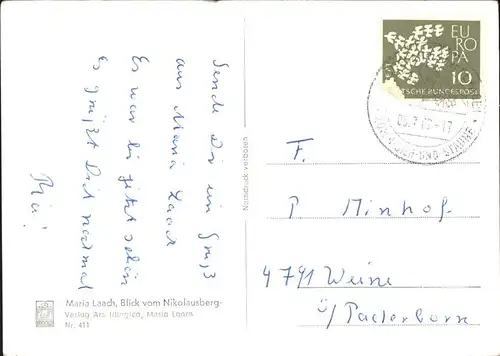 Sende Dir ein Gruß
aus Maria Laach
Es war bis jetzt schön
Es grüßt Dich nochmal
Maria Laach, Blick vom Nikolausberg-
Verlag Ars liturgica, Maria Laach
Nr. 411
Nachdruck verboten
EU
RO
PA
10
DEUTSCHE BUNDESPOST
F.
P. Minhof
4791 Weine
ü/ Paderborn